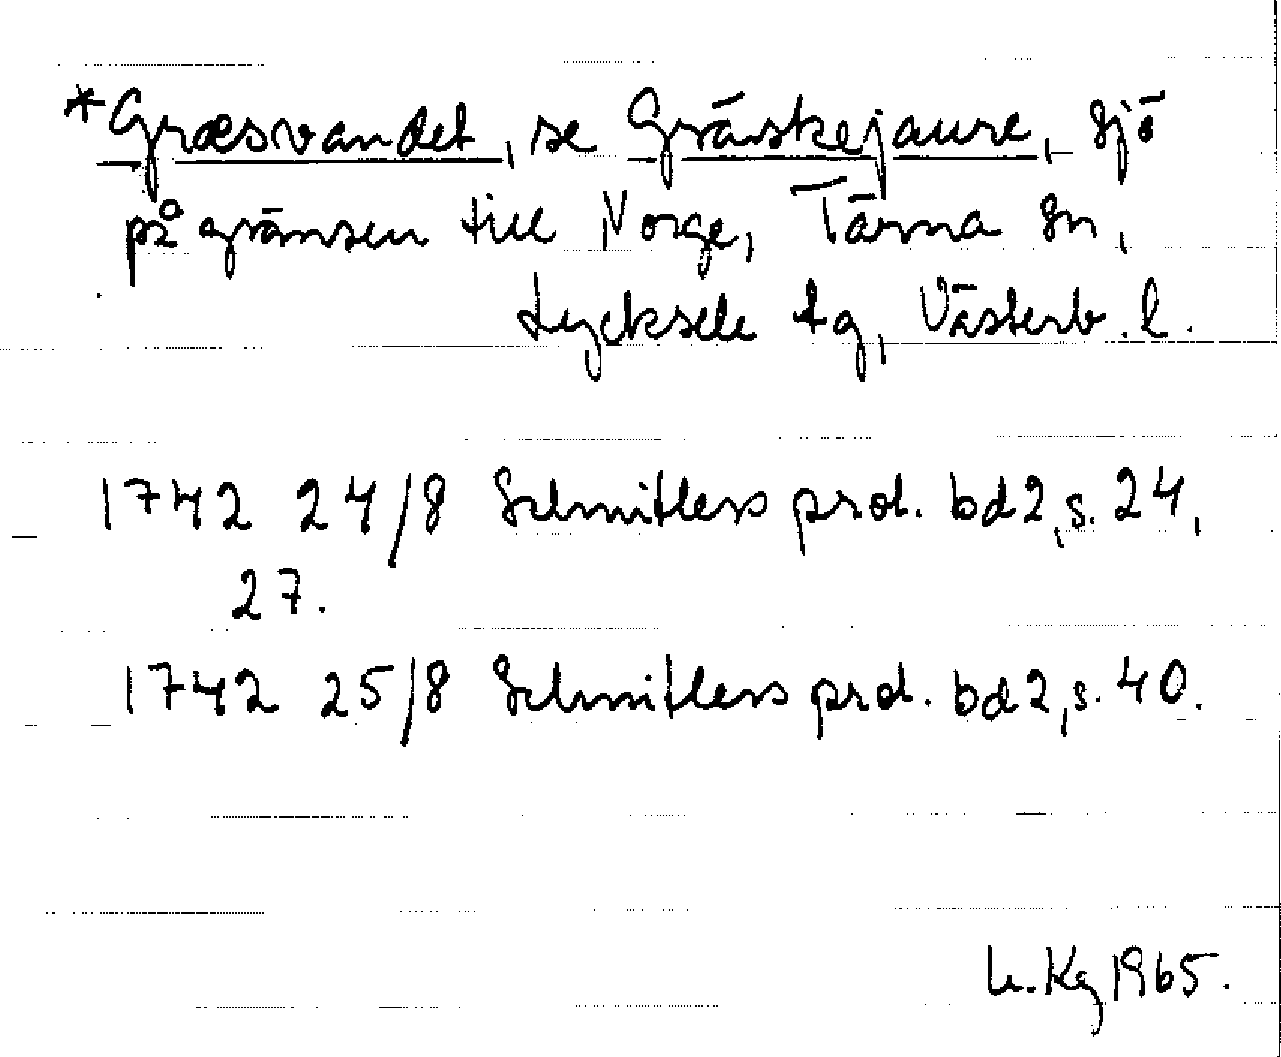 *Græsvandet, se Gräskejaure, sjö
på gränsen till Norge, Tärna sn,
Lycksele lg, Västerb. l.
1742 24/8 Schnitlers prot. bd 2, s. 24,
27.
1742 25/8 Schnitlers prot. bd 2, s. 40.
Kg 1965.